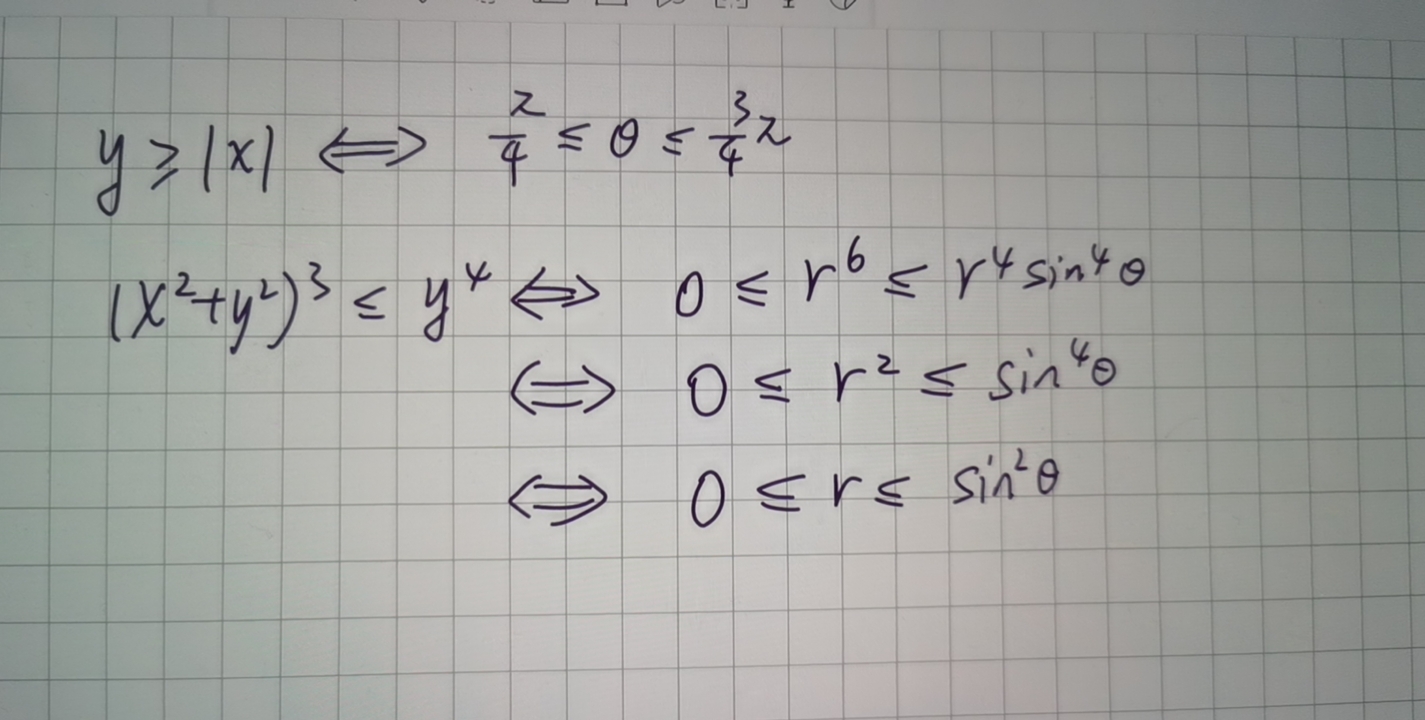 y ≥ |x| ⟺ π/4 ≤ θ ≤ 3/4 π
(x²+y²)³ ≤ y⁴ ⟺ 0 ≤ r⁶ ≤ r⁴ sin⁴θ
⟺ 0 ≤ r² ≤ sin⁴θ
⟺ 0 ≤ r ≤ sin²θ